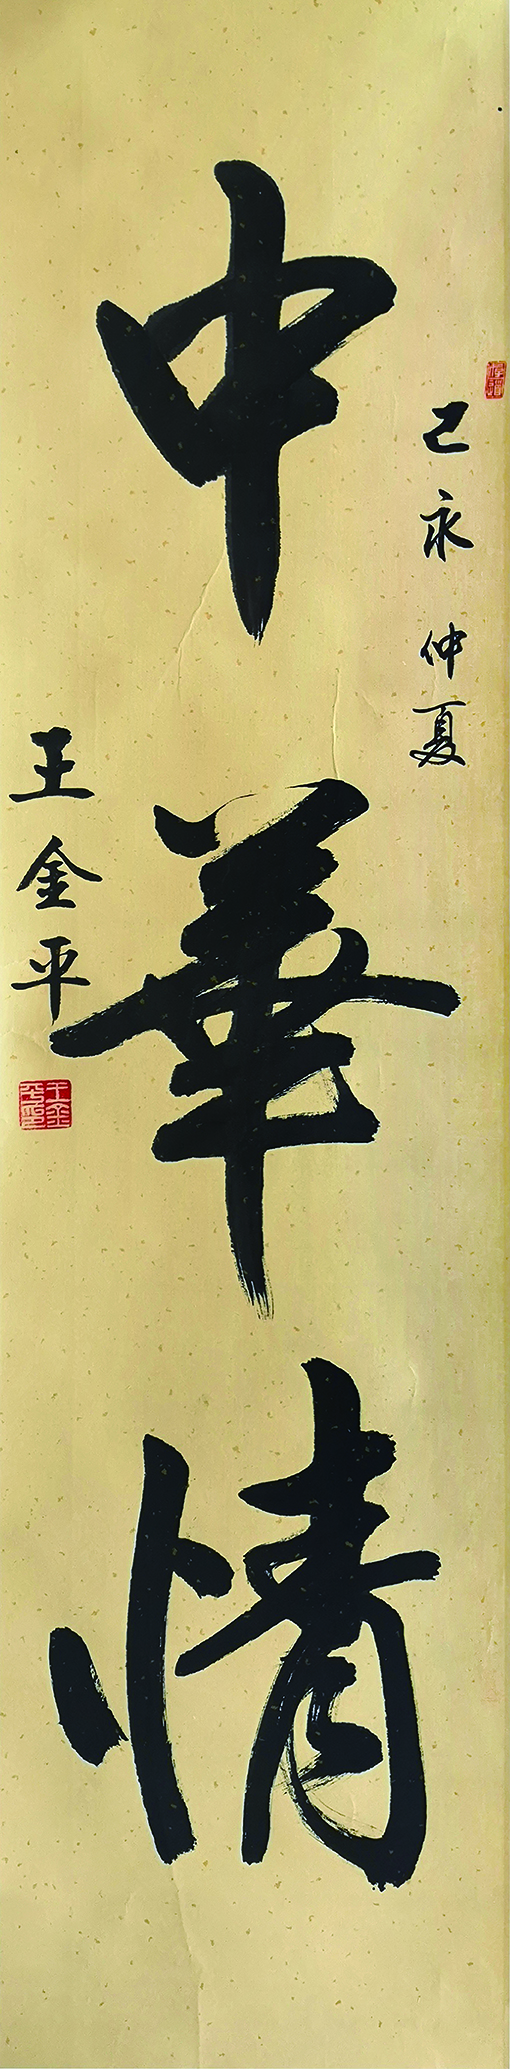 己亥仲夏
中華情
王金平
王金平印